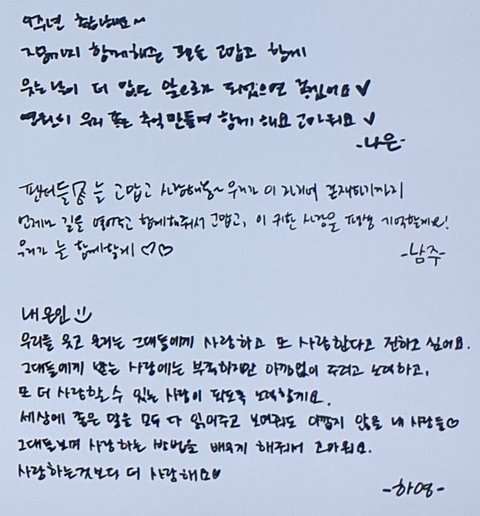 9주년 축하해요~
그동안 함께해준 모든 고맙고 함께
웃는 날이 더 많은 앞으로가 되었으면 좋겠어요♥
영원히 우리 좋은 추억 만들며 함께 해요 고마워요 ♥
-나은-
판다들 늘 고맙고 사랑해용~ 우리가 이 자리에 존재하기까지
언제나 길을 열어주고 함께해줘서 고맙고, 이 귀한 시간을 평생 기억할게요!
우리가 늘 함께할게 ♡♡
-남주-
내 온인 :)
우리를 웃고 울리는 그대들에게 사랑하고 또 사랑한다고 전하고 싶어요.
그대들에게 받는 사랑에는 부족하지만 아낌없이 주려고 노력하고,
또 더 사랑할 수 있는 사람이 되도록 노력할게요.
세상에 좋은 말을 모두 다 읽어주고 보여줘도 아깝지 않을 내 사람들♡
그대들보며 사랑하는 방법을 배우게 해줘서 고마워요.
사랑하는것보다 더 사랑해요♡
-하영-